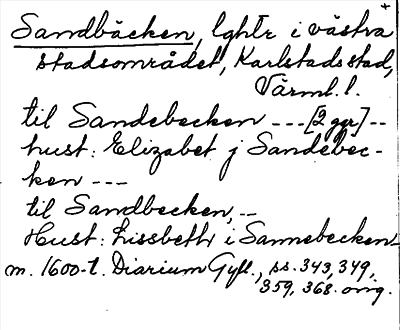 Sandbäcken, lghtr i västra
stadsområdet, Karlstads stad,
Värml. l.
til Sandebecken --- [2 ggr] --
hust: Elizabet j Sandebec-
ken ---
til Sandbecken, --
Hust: Lissbeth i Sannebecken
m. 1600-t. Diarium Gyll., ss. 343, 349,
359, 368. orig.